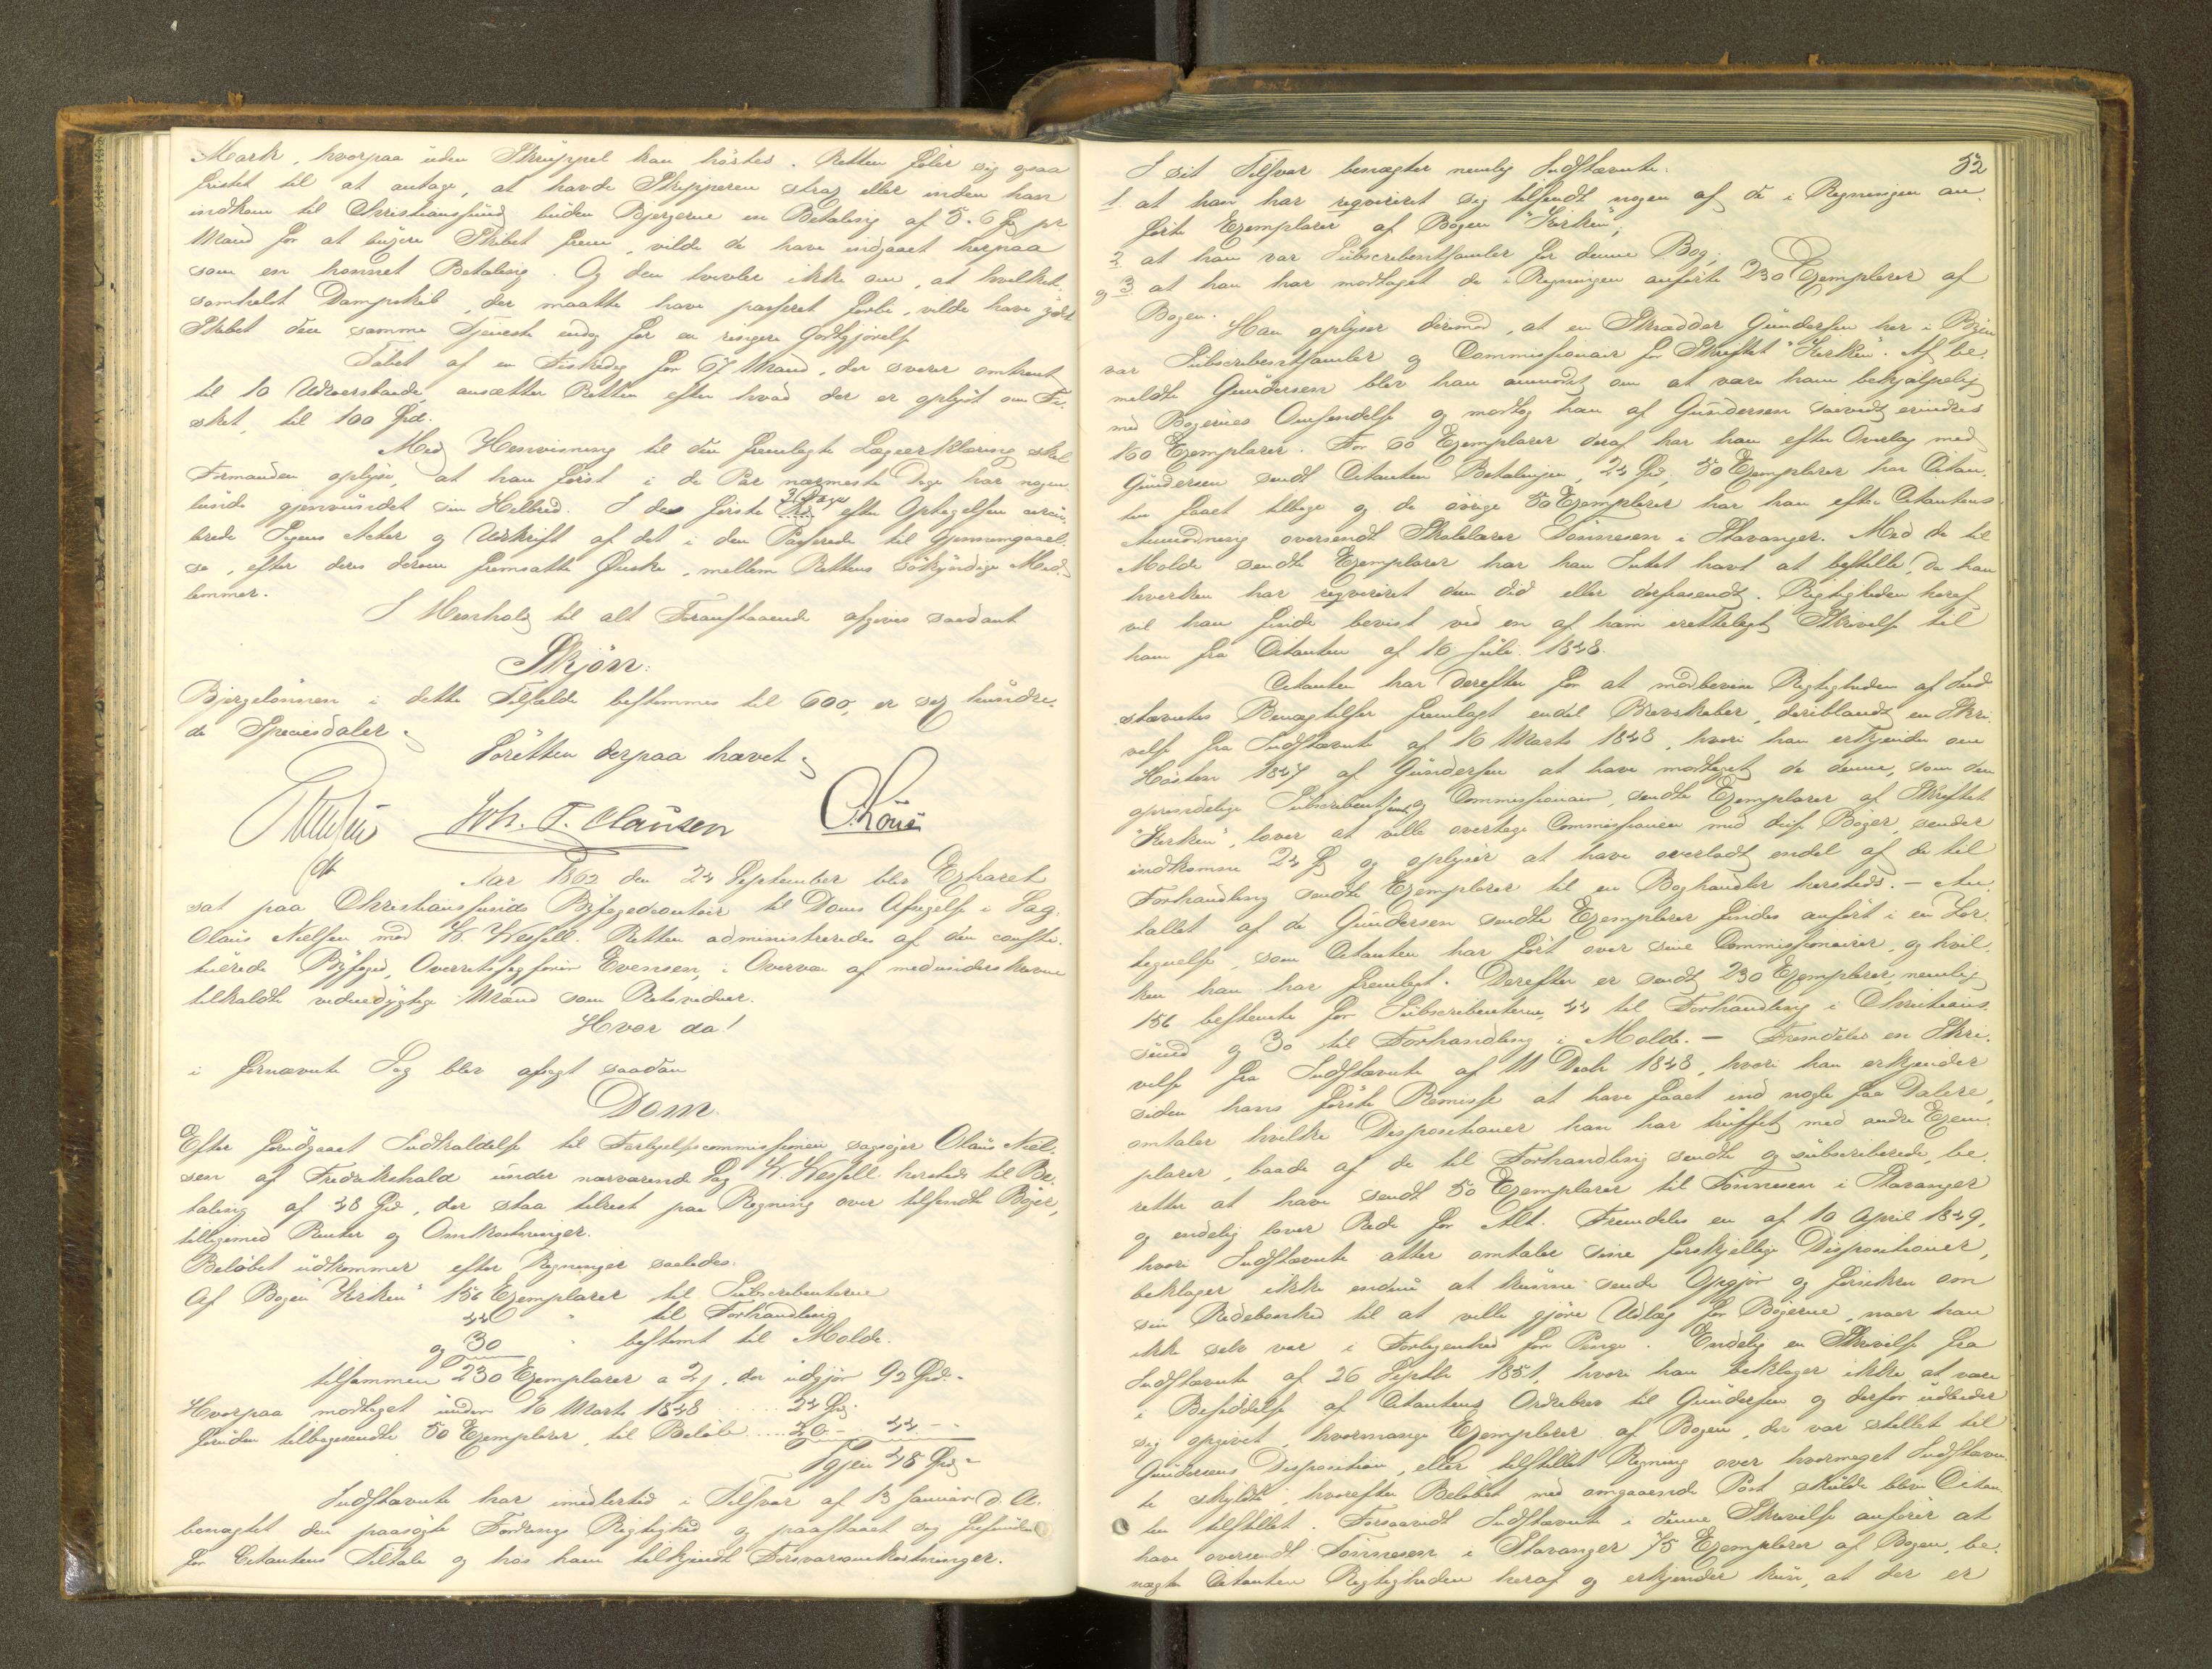 Mark, hvorpaa uden Skruppel kan høstes. Retten føler sig ogsaa
fristet til at antage, at havde Skipperen strax eller inden han
indkom til Christianssund buden Bjergerne en Betaling af 5-6 Spd pr
Mand for at bugsere Skibet frem, vilde de have indgaaet herpaa
som en honnet Betaling. Og den tvivler ikke om, at hvilket-
somhelst Dampskib, der maatte have passeret forbi, vilde have gjort
Skibet den samme Tjeneste endog for en ringere Godtgjørelse
Tabet af en Fiskedag for 67 Mand, der svarer omtrent
til 10 Udroersbaade, ansætter Retten efter hvad der er oplyst om Fi-
sket, til 100 Spd.
Med Henvisning til den fremlagte Lægeerklæring skal
Formanden oplyse, at han først i de Par nærmeste Dage har nogen-
lunde gjenvundet sin Helbred. I de første 3 Dage efter Optagelsen circu-
lerede Sagens Akter og Udskrift af det i den Passerede til Gjennemgaael-
se, efter deres derom fremsatte Ønske, mellem Rettens søkyndige Med-
lemmer.
I Henhold til alt Foranstaaende afgives saadant
Skjøn:
Bjergelønnen i dette Tilfælde bestemmes til 600, er sex hundre-
de Speciesdaler.
Forretten derpaa hævet.
Joh. F. Clausen
Aar 1862 den 24 September blev Extraret
sat paa Christianssunds Byfogedcontoir til Doms Afsigelse i Sag
Olaus Nielsen mod W. Wessell. Retten administreredes af den consti-
tuerede Byfoged, Overretssagfører Evensen, i Overvær af medunderskrevne
tilkaldte vederheftige Mænd som Retsvidner.
Hvor da!
i fornævnte Sag blev afsagt saadan
Dom.
Efter forudgaaet Indkaldelse til Forligelsescommissionen sagsøger Olaus Niel-
sen af Fredrikshald under nærværende Sag W. Wessell hersteds til Be-
taling af 48 Spd, der staa tilrest paa Regning over tilsendte Bøger,
tilligemed Renter og Omkostninger.
Beløbet udkommer efter Regninger saaledes:
Af Bogen "Kirken" 156 Exemplarer til Subscribenterne
44 " til Forhandling
og 30 " bestemt til Molde.
tilsammen 230 Exemplarer a 2 ƒ, der udgjør 92 Spd. -
Hvorpaa modtaget under 16 Marts 1848 ..... 24 Spd.
foruden tilbagesendte 50 Exemplarer, til Beløb .... 20 - 44 - -
Igjen 48 Spd -
Indstævnte har imedlertid i Tilsvar af 13 Januar d. A.
benægtet den paasøgte Fordrings Rigtighed og paastaaet sig frifunden
for Citantens Tiltale og hos ham tilkjendt Forsvarsomkostninger.
52
I sit Tilsvar benægter nemlig Indstævnte:
1. at han har reqvireret sig tilsendt nogen af de i Regningen an-
førte Exemplarer af Bogen "Kirken";
2 at han var Subscribentsamler for denne Bog;
og 3 at han har modtaget de i Regningen anførte 230 Exemplarer af
Bogen.
Han oplyser derimod, at en Skrædder Gundersen her i Byen
var Subscribentsamler og Commissionair for Skriftet "Kirken". Af be-
meldte Gundersen blev han anmodet om at være ham behjælpelig
med Bøgernes Omsendelse og modtog han af Gundersen saavidt erindres
160 Exemplarer. For 60 Exemplarer deraf har han efter Overlæg med
Gundersen sendt Citanten Betalingen, 24 Spd, 50 Exemplarer har Citan-
ten faaet tilbage og de øvrige 50 Exemplarer har han efter Citantens
Anmodning oversendt Skolelærer Tønnesen i Stavanger. Med de til
Molde sendte Exemplarer har han Intet havt at bestille, da han
hverken har reqvireret dem did eller derfra sendt. Rigtigheden heraf
vil han finde bevist ved en af ham irettelagt Skrivelse til
ham fra Citanten af 16 Juli 1848.
Citanten har derefter for at modbevise Rigtigheden af Ind-
stævntes Benægtelser fremlagt endel Brevskaber, deriblandt en Skri-
velse fra Indstævnte af 16 Marts 1848, hvori han erkjender om
Høsten 1847 af Gundersen at have modtaget de denne, som den
oprindelige Subscribentsaml og Commissionair, sendte Exemplarer af Skriftet
"Kirken", lover at ville overtage Commissionen med disse Bøger, sender
indkomne 24 Spd og oplyser at have overladt endel af de til
Forhandling sendte Exemplarer til en Boghandler hersteds. - An-
tallet af de Gundersen sendte Exemplarer findes anført i en For-
tegnelse, som Citanten har ført over sine Commissionairer, og hvil-
ken han har fremlagt. Derefter er sendt 230 Exemplarer, nemlig
156 bestemte for Subscribenterne, 44 til Forhandling i Christians-
sund og 30 til Forhandling i Molde. - Fremdeles en Skri-
velse fra Indstævnte af 11 Decbr 1848, hvori han erkjender
siden hans første Remisse at have faaet ind nogle faa Dalere,
omtaler hvilke Dispositioner han har truffet med andre Exem-
plarer, baade af de til Forhandling sendte og subscriberede, be-
retter at have sendt 50 Exemplarer til Tønnesen i Stavanger
og endelig lover Rede for Alt. Fremdeles en af 10 April 1849,
hvori Indstævnte atter omtaler sine forskjellige Dispositioner,
beklager ikke endnu at kunne sende Opgjør og forsikrer om
sin Redebonhed til at ville gjøre Udlæg for Bøgerne, naar han
ikke selv var i Forlegenhed for Penge. Endelig en Skrivelse fra
Indstævnte af 26 Septbr 1851, hvori han beklager ikke at være
i Besiddelse af Citantens Ordrebrev til Gundersen og derfor udbeder
sig opgivet, hvormange Exemplarer af Bogen, der var stillet til
Gundersens Disposition, eller tilstillet Regning over hvormeget Indstævn-
te skyldte, hvorefter Beløbet med omgaaende Post skulde blive Citan-
ten tilstillet. Forsaavidt Indstævnte i denne Skrivelse anfører at
have oversendt Tønnesen i Stavanger 75 Exemplarer af Bogen, be-
nægter Citanten Rigtigheden heraf og erkjender kun, at der er